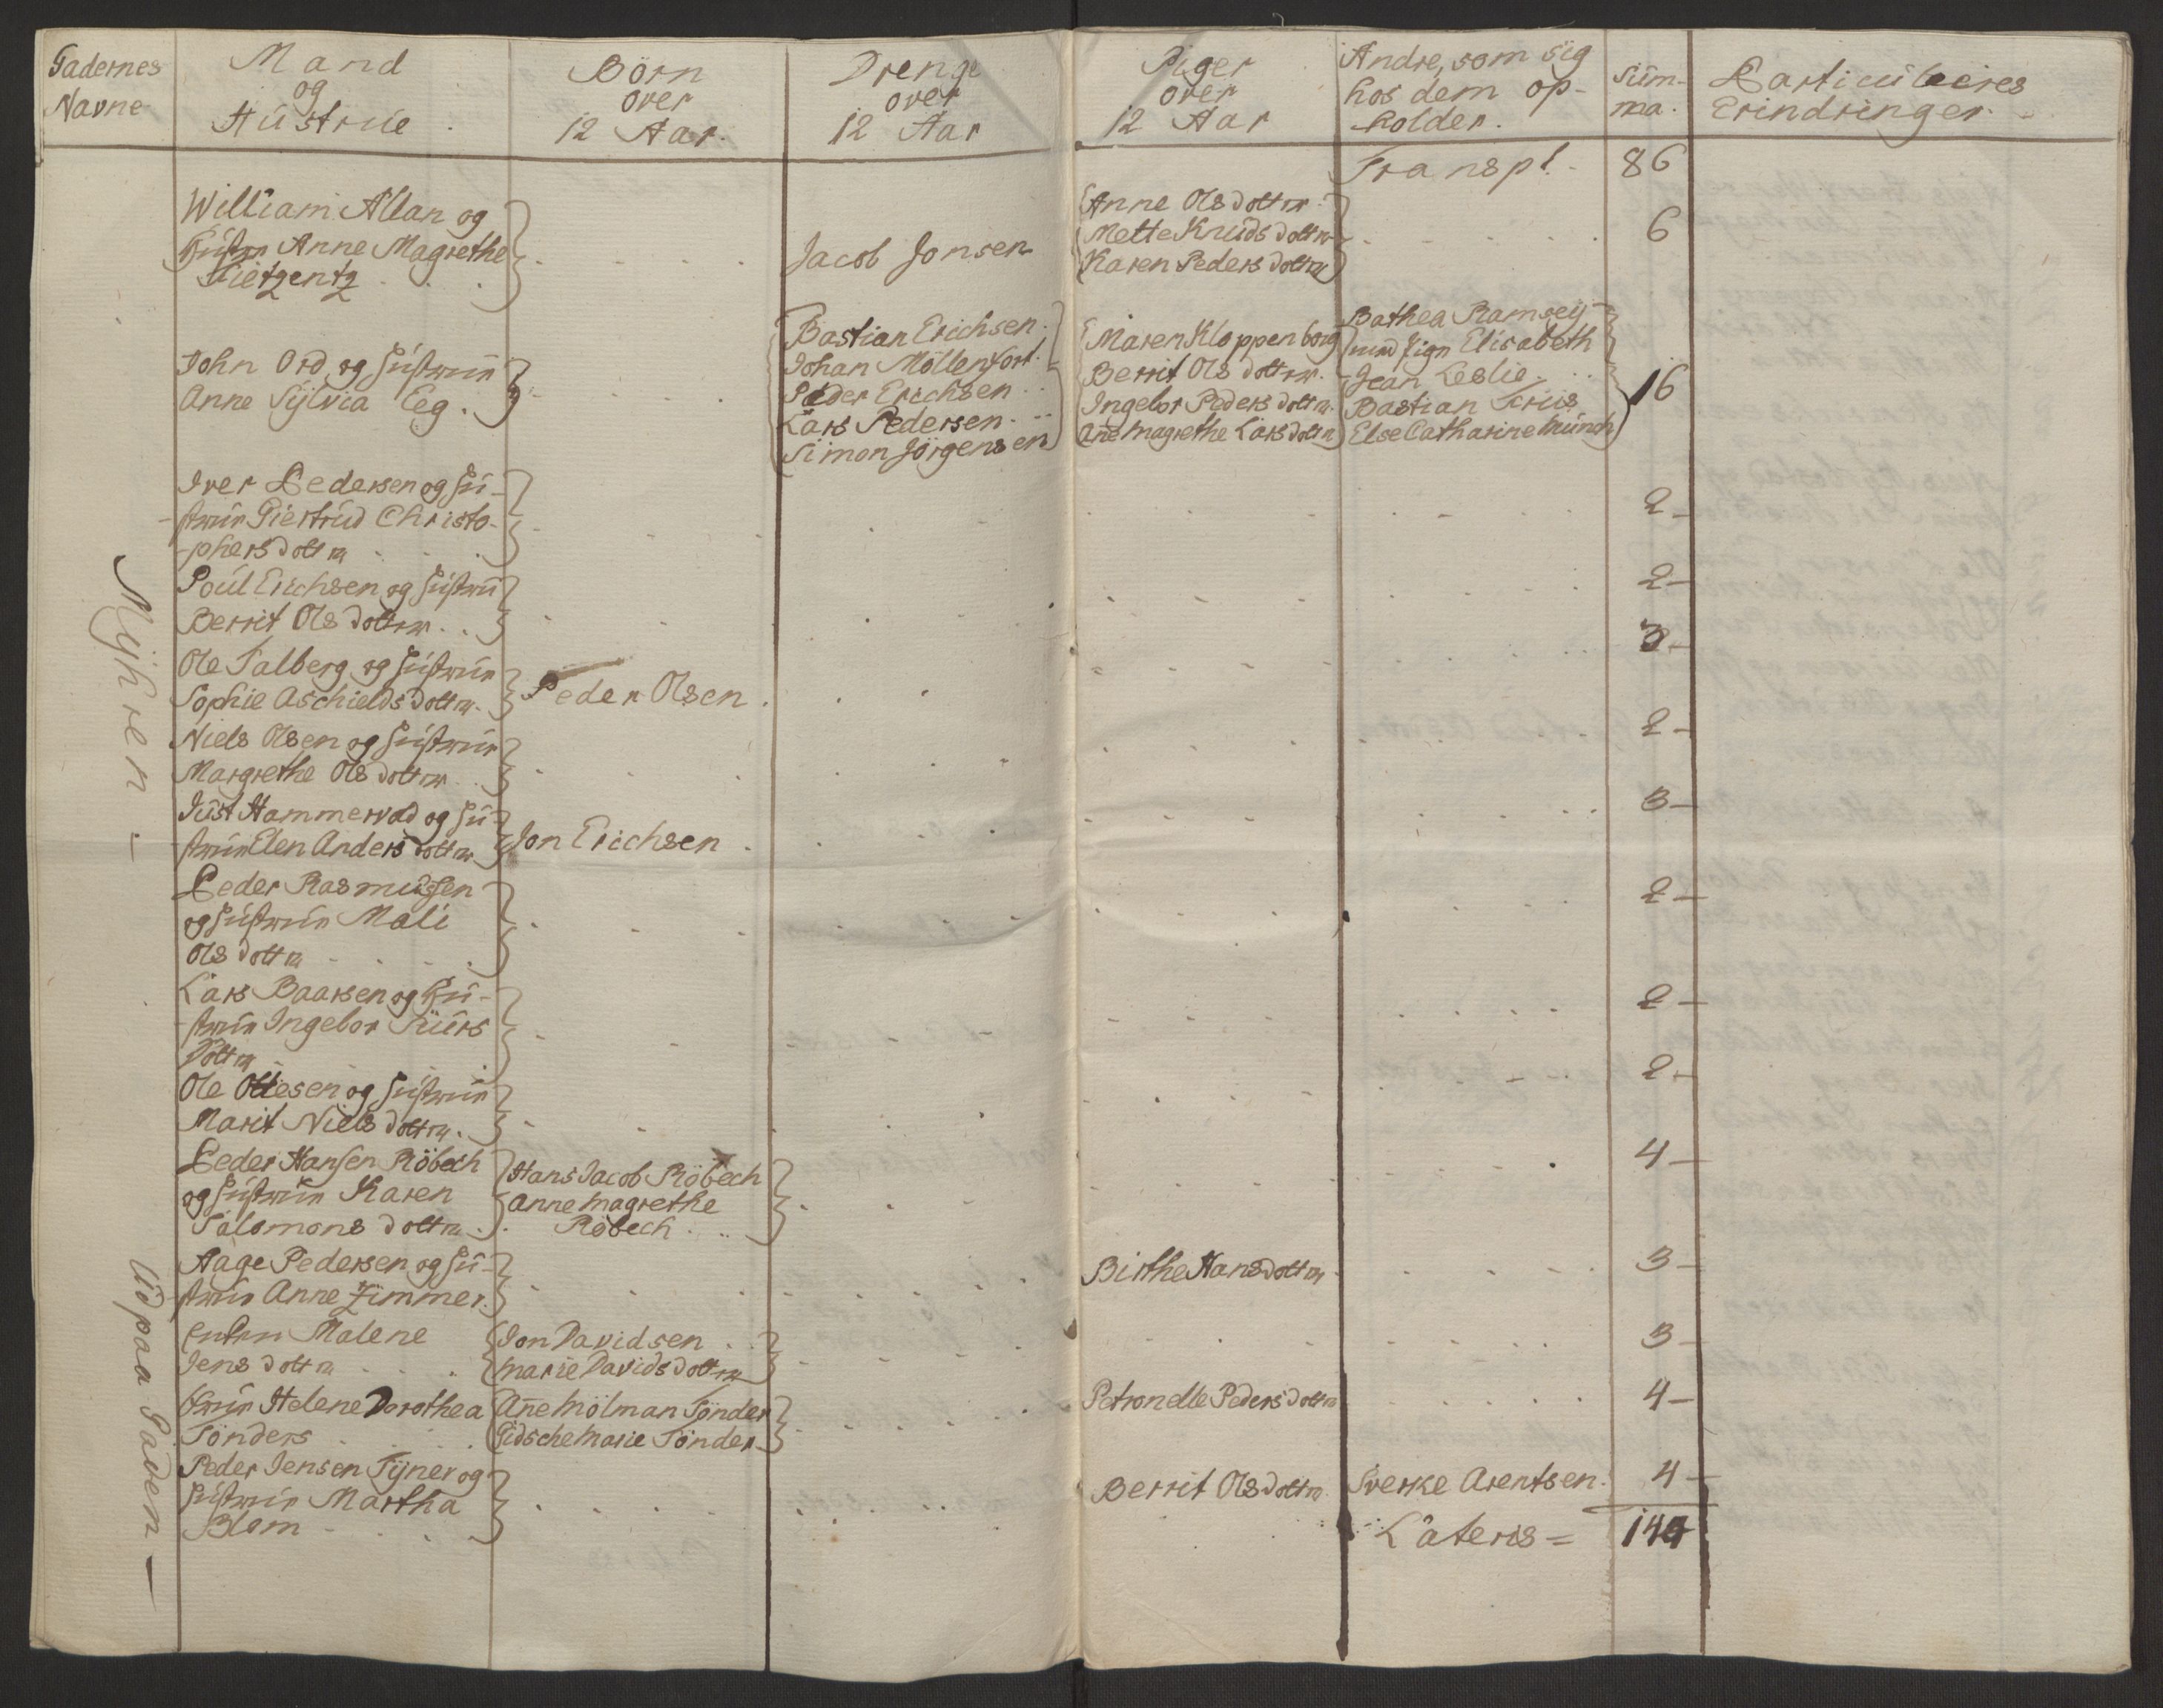 Gadernes
Navne
Mand
og
Hústrúe
Börn
over
12 Aar.
Drenge
over
12 Aar
Piger
over
12 Aar
Andre, som sig
hos dem op-
holder.
Súm-
ma.
Particúlaires
Erindringer.
Transpt. 86
William Allan og
Hústrú Anne Magrethe
Jacob Jonsen
Anne Olsdotter
Mette Knúdsdotter
Karen Pedersdotter
6
John Ord og Hústrúe
Anne Sÿlvia Eeg.
Bastian Erichsen
Johan Möllenfort
Peder Erichsen
Lars Pedersen
Simon Jörgensen
Maren Kloppenborg
Berrit Olsdotter
Ingebor Pedersdotter
Ane Magrethe Larsdotter
Bathea Ramseÿ
Elisabeth
Jean Leslie
Bastian
Else Catharine Múnch
16
Mÿhren
Iver Pedersen og Hú-
strúe Giertrúd Christo-
phersdotter
2
Poúl Erichsen og Hústrúe
Berrit Olsdotter
2
Ole Salberg og Hústrúe
Sophie Aschieldsdotter
Peder Olsen
3
Niels Olsen og Hústrúe
Margrethe Olsdotter
2
Júst Hammervold og Hú-
strúe Elen Andersdotter
Jon Erichsen
3
Peder Rasmússen
og Hústrúe Mali
Olsdotter
2
Lars Baarsen og Hú-
strúe Ingebor Siúrs
dotter
2
Ole Ottesen og Hústrúe
Marit Nielsdotter
2
Peder Hansen Röbech
og Hústrúe Karen
Salomonsdotter
Hans Jacob Röbech
Anne Magrethe
Röbech
4
Údpaa Gaden
Aage Pedersen og Hú-
strúe Anne Zimmer
Birthe Hansdotter
3
Enken Malene
Jensdotter
Jon Davidsen
Marie Davidsdotter
3
Helene Dorothea
Tönders
Ane Mölman Tönder
Marie Tönder
Petronelle Pedersdotter
4
Peder Jensen Tÿner og
Hústrúe Martha
Blom
Berrit Olsdotter
Sverke Arentsen
4
Lateris = 144